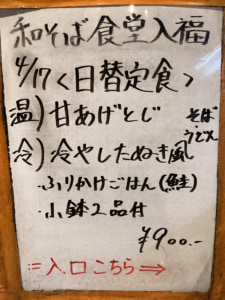 和そば食堂入福
4/17<日替定食>
温)甘あげとじ
そば
うどん
冷)冷やしたぬき風
・ふりかけごはん(鮭)
・小鉢2品付
¥900.-
:=入口こちら⇒